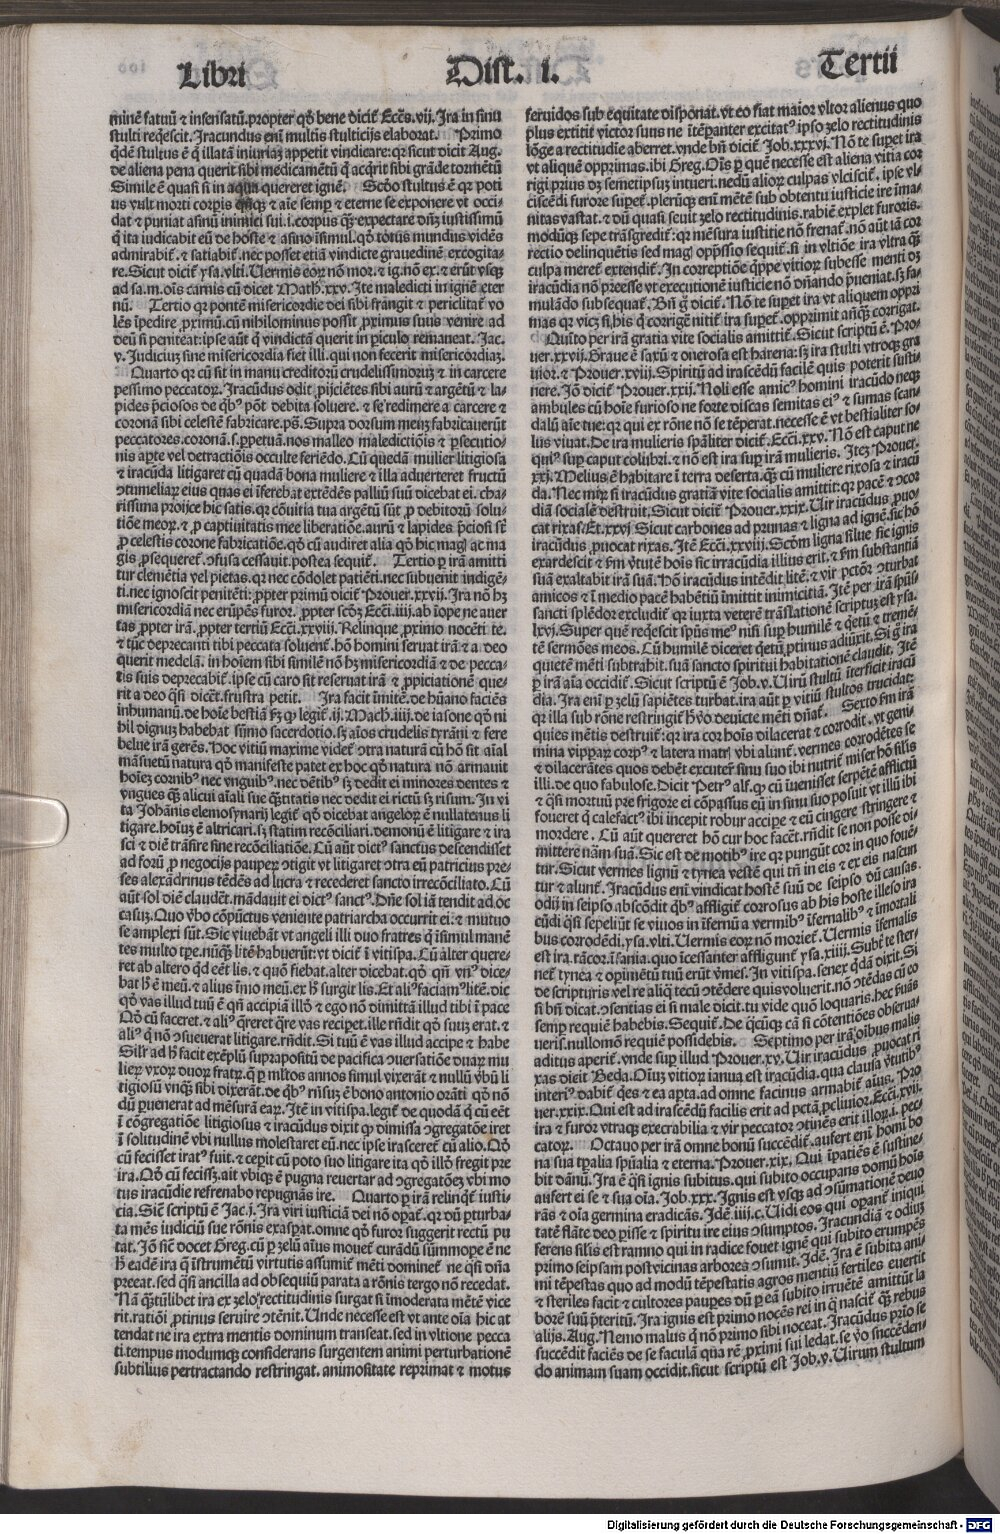 Libri Dist. i. Tertii
minē fatuū ⁊ insensatū. propter qđ bene dicit̃ Ecc̄s. vij. Ira in sinu
stulti reꝗescit. Iracundus enī multis stulticijs elaborat. Primo
ꝗdē stultus ē ꝗ illatā iniuriā appetit vindicare: qꝛ sicut dicit Aug.
de aliena pena querit sibi medicamētū ꝗ acꝗrit sibi grāde tormētū
Simile ē quasi si in aqua quereret ignē. Scđo stultus ē qꝛ poti
us vult morti corpis ⁊ aīe semꝑ ⁊ eterne se exponere vt occi-
dat ⁊ puniat asinū inimici sui. i. corpus ꝗꝫ expectare dn̄ꝫ iustissimū
ꝗ ita iudicabit eū de hoste ⁊ asino īsimul. qđ totus mundus vidēs
admirabit̃. ⁊ satiabit̃. nec posset etiā vindicte grauedinē excogita-
re. Sicut dicit̃ ysa. vlti. Uermis eoꝝ nō mor. ⁊ ig. nō ex. ⁊ erūt vsqꝫ
ad sa. m. oīs carnis cū dicet Math. xxv. Ite maledicti in ignē eter
nū. Tertio qꝛ pontē misericordie dei sibi frangit ⁊ periclitat̃ vo
lēs īpedire ꝓximū. cū nihilominus possit ꝓximus suus venire ad
deū si peniteat: ipse aūt ꝗ vindictā querit in ꝑiculo remaneat. Jac.
v. Judiciuꝫ sine misericordia fiet illi. qui non fecerit misericordiaꝫ.
Quarto qꝛ cū sit in manu creditorū crudelissimoruꝫ ⁊ in carcere
pessimo peccatoꝝ. Iracūdus odit ꝓijciētes sibi aurū ⁊ argētū ⁊ la-
pides p̄ciosos de qb⁹ pōt debita soluere. ⁊ se redimere a carcere ⁊
coronā sibi celestē fabricare. ps̄. Supra dorsum meuꝫ fabricauerūt
peccatores. coronā. s. ꝑpetuā. nos malleo maledictiōis ⁊ ꝑsecutio-
nis aꝑte vel detractiōis occulte feriēdo. Cū quedā mulier litigiosa
⁊ iracūda litigaret cū quadā bona muliere ⁊ illa aduerteret fructū
ↄtumeliaꝝ eius quas ei īferebat extēdēs palliū suū dicebat ei. cha-
rissima proijce hic satis. qꝛ cōuitia tua argētū sūt ꝓ debitorū solu-
tiōe meoꝝ. ⁊ ꝓ captiuitatis mee liberatiōe. aurū ⁊ lapides p̄ciosi st̄
ꝓ celestis corone fabricatiōe. qđ cū audiret alia qđ hic magꝭ ac ma
gis ꝓsequeret̃ ↄfusa cessauit. postea sequit̃. Tertio ꝑ irā amitti
tur clemētia vel pietas. qꝛ nec cōdolet patiēti. nec subuenit indigē-
ti. nec ignoscit penitēti: ꝓpter primū dicit̃ Prouer. xxvij. Ira nō hꝫ
misericordiā nec erūpēs furor. ꝓpter scđꝫ Ecci. iiij. ab īope ne auer
tas ꝓpter irā. ꝓpter tertiū Ecci. xxviij. Relinque ꝓximo nocēti te.
⁊ tūc deprecanti tibi peccata soluent̃. hō homini seruat irā ⁊ a deo
querit medelā. in hoīem sibi similē nō hꝫ misericordiā ⁊ de pecca-
tis suis deprecabit̃. ipse cū caro sit reseruat irā ⁊ ꝓpiciationē que-
rit a deo q̄si dicēt. frustra petit. Ira facit īmitē. de hūano faciēs
inhumanū. de hoīe bestiā sꝫ ꝙ legit̃. ij. Mach. iiij. de iasone qđ ni
hil dignuꝫ habebat sūmo sacerdotio. sꝫ aīos crudelis tyrāni ⁊ fere
belue irā gerēs. Hoc vitiū maxime videt̃ ↄtra naturā cū hō sit aīal
māsuetū natura qđ manifeste patet ex hoc qđ natura nō armauit
hoīeꝫ cornib⁹ nec vnguib⁹. nec dētib⁹ sꝫ dedit ei minores dentes ⁊
vngues ꝗꝫ alicui aīali sue ꝗ̄titatis nec dedit ei rictū sꝫ risum. In vi
ta Johānis elemosynarij legit̃ qđ dicebat angeloꝝ ē nullatenus li
tigare. hoīuꝫ ē altricari. sꝫ statim recōciliari. demonū ē litigare ⁊ ira
sci ⁊ diē trāsire sine recōciliatiōe. Cū aūt dict⁹ sanctus descendisset
ad forū ꝓ negocijs pauperꝝ ↄtigit vt litigaret ↄtra eū patricius pre-
ses alexādrinus tēdēs ad lucra ⁊ recederet sancto irrecōciliato. Cū
aūt sol diē clauderet. mādauit ei dict⁹ sanct⁹. Dn̄e sol iā tendit ad oc
casuꝫ. Quo v̄bo cōpūctus veniente patriarcha occurrit ei: ⁊ mutuo
se amplexi sūt. Sic viuebāt vt angeli illi duo fratres ꝗ īsimul manē
tes multo tꝑe. nūꝗꝫ litē habuerūt: vt dicit̃ ī vitispa. Cū alter quere-
ret ab altero ꝗd eēt lis. ⁊ quō fiebat. alter dicebat. qđ qn̄ vn⁹ dice-
bat h̄ ē meū. ⁊ alius īmo meū. ex h̄ surgit lis. Et ali⁹ faciam⁹ litē. dic
qđ vas illud tuū ē qn̄ accipiā illđ ⁊ ego nō dimittā illud tibi ī pace
Qđ cū faceret. ⁊ ali⁹ ꝗreret ꝗre vas recipet. ille rn̄dit qđ suuꝫ erat. ⁊
ali⁹ ꝗ nō ↄsueuerat litigare. rn̄dit. Si tuū ē vas illud accipe ⁊ habe
Silr̄ ad h̄ facit exēplū suprapositū de pacifica ↄuersatiōe duaꝝ mu
lieꝝ vxoꝝ duoꝝ fratꝝ. ꝗ ꝑ ml̄tos annos simul vixerāt ⁊ nullū v̄bū li
tigiosū vnꝗꝫ sibi dixerāt. de qb⁹ rn̄suꝫ ē bono antonio orāti qđ nō
dū ꝑuenerat ad mēsurā eaꝝ. Itē in vitispa. legit̃ de quodā ꝗ cū eēt
ī cōgregatiōe litigiosus ⁊ iracūdus dixit ꝙ dimissa ↄgregatōe iret
ī solitudinē vbi nullus molestaret eū. nec ipse irasceret̃ cū alio. Qđ
cū fecisset irat⁹ fuit. ⁊ cepit cū poto suo litigare ita qđ illđ fregit pre
ira. Qđ cū fecissꝫ. ait vbiqꝫ ē pugna reuertar ad ↄgregatōeꝫ vbi mo
tus iracūdie refrenabo repugnās ire. Quarto ꝑ irā relinꝗt̃ iusti-
cia. Sic̄ scriptū ē Jac. j. Ira viri iusticiā dei nō oꝑat̃. qꝛ dū ꝑturba-
ta mēs iudiciū sue rōnis exasꝑat. omne qđ furor suggerit rectū pu
tat. Iō sic̄ docet Greg. cū ꝑ zelū aīus mouet̃ curādū sūmoꝑe ē ne
h̄ eadē ira ꝗ īstrumētū virtutis assumit̃ mēti dominet̃ ne ꝗsi dn̄a
preeat. sed ꝗsi ancilla ad obsequiū parata a rōnis tergo nō recedat.
Nā ꝗ̄tūlibet ira ex zelo rectitudinis surgat si īmoderata mētē vice
rit. ratiōi ꝓtinus seruire ↄtēnit. Unde necesse est vt ante oīa hic at
tendat ne ira extra mentis dominum transeat. sed in vltione pecca
ti tempus modumqꝫ considerans surgentem animi perturbationē
subtilius pertractando restringat. animositate reprimat ⁊ motus
feruidos sub equitate disponat. vt eo fiat maior vltor alienus quo
plus extitit victor suus ne ītēꝑanter excitat⁹ ipso zelo rectitudinis
lōge a rectitudīe aberret. vnde bn̄ dicit̃ Job. xxxvj. Nō te suꝑet ira
vt aliquē opprimas. ibi Greg. Oīs ꝑ quē necesse est aliena vitia cor
rigi prius dꝫ semetipsuꝫ intueri. nedū alioꝝ culpas vlciscit̃. ipse vl-
ciscēdi furore suꝑet̃. plerūqꝫ enī mētē sub obtentu iusticie ire ima-
nitas vastat. ⁊ dū quasi seuit zelo rectitudinis. rabiē explet furoris.
modūqꝫ sepe trāsgredit̃: qꝛ mēsura iustitie nō frenat̃. nō aūt iā cor
rectio delinquētis sed magꝭ opp̄ssio sequit̃. si in vltiōe ira vltra ꝗꝫ
culpa meret̃ extendit̃. In correptiōe ꝗppe vitioꝝ subesse menti dꝫ
iracūdia nō preesse vt executionē iusticie nō dn̄ando p̄ueniat. sꝫ fa-
mulādo subsequat̃. Bn̄ ꝗ dicit̃. Nō te suꝑet ira vt aliquem oppri
mas qꝛ vicꝫ si. his ꝗ corrigē nitit̃ ira suꝑet̃. opprimit anꝗꝫ corrigat.
Quīto ꝑ irā gratia vite socialis amittit̃. Sicut scriptū ē. Pro-
uer. xxvij. Graue ē saxū ⁊ onerosa est harena: sꝫ ira stulti vtroqꝫ gra
uior. ⁊ Prouer. xviij. Spiritū ad irascēdū facilē quis poterit susti-
nere. Iō dicit̃ Prouer. xxij. Noli esse amic⁹ homini iracūdo neqꝫ
ambules cū hoīe furioso ne forte discas semitas ei⁹ ⁊ sumas scan-
dalū aīe tue: qꝛ qui ex rōne nō se tēperat. necesse ē vt bestialiter so-
lus viuat. De ira mulieris spāliter dicit̃. Ecci. xxv. Nō est caput ne
qui⁹ suꝑ caput colubri. ⁊ nō est ira suꝑ irā mulieris. Iteꝫ Prouer.
xxj. Melius ē habitare ī terra deserta. ꝗꝫ cū muliere rixosa ⁊ iracū
da. Nec miꝝ si iracūdus gratiā vite socialis amittit: qꝛ pacē ⁊ ↄcor
diā socialē destruit. Sicut dicit̃ Prouer. xxix. Uir iracūdus ꝓuo-
cat rixas. Et. xxvj Sicut carbones ad prunas ⁊ ligna ad ignē. sic hō
iracūdus ꝓuocat rixas. Itē Ecci. xxviij. Scđm ligna silue sic ignis
exardescit ⁊ fm v̄tutē hoīs sic irracūdia illius erit. ⁊ fm substantiā
suā exaltabit irā suā. Hō iracūdus intēdit litē. ⁊ vir pctōꝝ ↄturbat
amicos ⁊ ī medio pacē habētiū īmittit inimicitiā. Itē per irā spūs-
sancti splēdor excludit̃ qꝛ iuxta veterē trāslationē scriptuꝫ est ysa.
lxvj. Super quē reꝗescit spūs me⁹ nisi suꝑ humilē ⁊ ꝗetū ⁊ tremē-
tē sermōes meos. Cū humilē diceret ꝗetū ꝓtinus adiūxit. Si ꝗ ira
quietē mēti subtrahit. suā sancto spiritui habitationē claudit. Itē
ꝑ irā aīa occidit̃. Sicut scriptū ē Job. v. Uirū stultū īterficit iracū
dia. Ira enī ꝑ zelū sapiētes turbat. ira aūt ꝑ vitiū stultos trucidat:
qꝛ illa sub rōne restringit̃ h̄ v̄o deuicte mēti dn̄at̃. Sexto fm irā
quies mētis destruit̃: qꝛ ira cor hoīs dilacerat ⁊ corrodit. vt geni-
mina vipꝑaꝝ corp⁹ ⁊ latera matrꝭ vbi alunt̃. vermes corrodētes se
⁊ dilacerātes quos debēt excuter̃ sinu suo ibi nutrit̃ miser hō filis
illi. de quo fabulose. Dicit Petr⁹ alf. ꝙ cū īuenisset serpētē afflictū
⁊ ꝗsi mortuū pre frigore ei cōpassus eū in sinu suo posuit vt illū ibi
foueret ꝗ calefact⁹ ibi incepit robur accipe ⁊ eū cingere stringere ⁊
mordere. Cū aūt quereret hō cur hoc facēt. rn̄dit se non posse di-
mittere nām suā. Sic est de motib⁹ ire qꝛ pungūt cor in quo fouē-
tur. Sicut vermes lignū ⁊ tynea vestē qui tn̄ in eis ⁊ ex eis nascun
tur ⁊ alunt̃. Iracūdus enī vindicat hostē suū de seipso dū causas
odij in seipso abscōdit qb⁹ affligit̃ corrosus ab his hoste illeso ira
cūdi ꝗsi sepeliūt se viuos in īfernū a vermib⁹ īfernalib⁹ ⁊ īmortali
bus corrodēdi. ysa. vlti. Uermis eoꝝ nō moriet̃. Uermis īfernalis
est ira. rācor. īsania. quo īcessanter affligunt̃ ysa. xiiij. Subt̄ te ster-
net̃ tynea ⁊ opimētū tuū erūt v̄mes. In vitispa. senex ꝗdā dixit. Si
de scripturis vel re aliꝗ tecū ↄtēdere quis voluerit. nō ↄtēdas cū eo
si bn̄ dicat. ↄsentias ei si male dicit. tu vide quō loquaris. hec seruās
semꝑ requiē habebis. Sequit̃. De ꝗcūqꝫ cā si cōtentiōes obserua-
ueris. nullomō requiē possidebis. Septimo per irā oībus malis
aditus aperit̃. vnde sup illud Prouer. xv. Uir iracūdus ꝓuocat ri
xas dicit Beda. Oīuꝫ vitioꝝ ianua est iracūdia. qua clausa v̄tutib⁹
interi⁹ dabit̃ ꝗes ⁊ ea aꝑta. ad omne facinus armabit̃ aīus. Pro
uer. xxix. Qui est ad irascēdū facilis erit ad pctā ꝓcliuior. Ecci. xxvij.
ira ⁊ furor vtraqꝫ execrabilia ⁊ vir peccator ↄtinēs erit illoꝝ. i. pec-
catoꝝ. Octauo per irā omne bonū succēdit̃. aufert enī homi bo
na sua tꝑalia spūalia ⁊ eterna. Prouer. xix. Qui īpatiēs ē sustine-
bit dānū. Ira ē ꝗsi ignis subitus. qui subito occupans domū hoīs
aufert ei se ⁊ sua oīa. Job. xxx. Ignis est vsqꝫ ad ↄsūmationē deuo
rās ⁊ oīa germina eradicās. Idē. iiij. c. Uidi eos qui oꝑant̃ iniqui
tatē flāte deo ꝑisse ⁊ spiritu ire eius ↄsumptos. Iracundiā ⁊ odiuꝫ
ferens silis est ramno qui in radice fouet ignē qui subito erumpēs
primo seipsam post vicinas arbores ↄsumit. Idē. Ira ē subita ani-
mi tēpestas quo ad modū tēpestatis agros mentiū fertiles euertit
⁊ steriles facit ⁊ cultores pauꝑes dū ꝑ eā subito irruētē amittūt la
borē suū p̄teritū. Ira ignis est primo nocēs rei in ꝗ nascit̃ ꝗꝫ rebus
alijs. Aug. Nemo malus ꝗ nō primo sibi noceat. Iracūdus prio se
succēdit faciēs de se faculā qua rē ꝓximi sui ledat. se v̄o succēden-
do animam suam occidit. sicut scriptū est Job. v. Uirum stultum
Digitalisierung gefördert durch die Deutsche Forschungsgemeinschaft - DFG